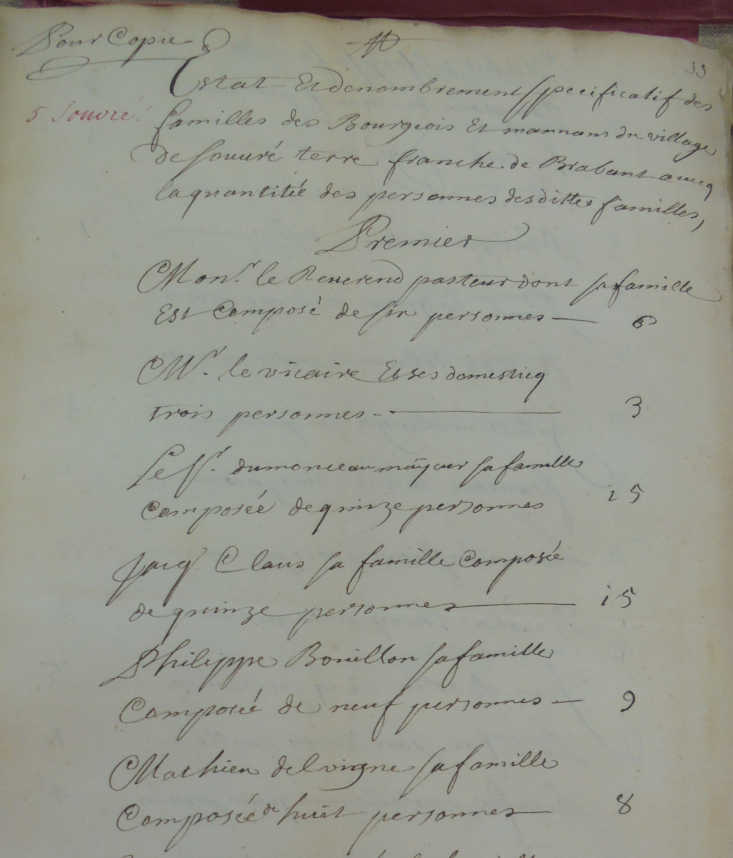 Pour Copie
33
5 Souvré
Estat Et denombrement specificatif des
familles des Bourgeois Et mannans du village
de Souuré terre franche de Brabant auecq
la quantitée des personnes desdittes familles,
Premier
Monr. le Reuerend pasteur dont sa famille
Est Composé de six personnes — 6
Mr. le vicaire Et ses domesticq
trois personnes — 3
Le Sr. dumonceau maÿeur sa famille
Composée de quinze personnes 15
Jacq Claus sa famille Composée
de quinze personnes — 15
Philippe Bouillon sa famille
Composée de neuf personnes — 9
Mathieu delvigne sa famille
Composée de huit personnes — 8